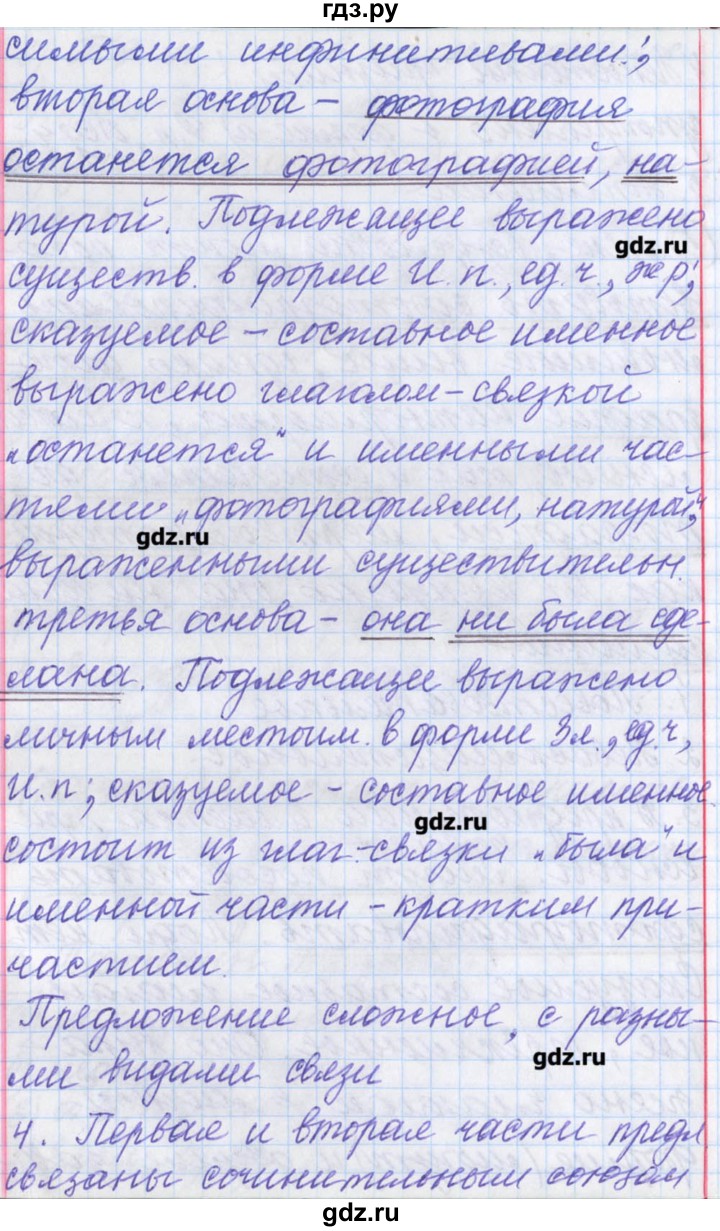 гдз.ру
симыми инфинитивами.;
вторая основа – фотография
останется фотографией, на-
турой. Подлежащее выражено
gdz.ru
существ. в форме И.п., ед.ч., жр;
сказуемое – составное именное
выражено глаголом-связкой
„останется“ и именными час-
тями „фотографиями, натурой“,
gdz.ru
выраженными существительн.
третья основа – она ни была сде-
лана. Подлежащее выражено
личным местоим. в форме 3л., ед.ч,
И.п; сказуемое – составное именное,
gdz.ru
состоит из глаг.-связки „была“ и
именной части – кратким при-
частием.
Предложение сложное, с разны-
gdz.ru
ми видами связи
4. Первая и вторая части предл
связаны сочинительным союзом
gdz.ru